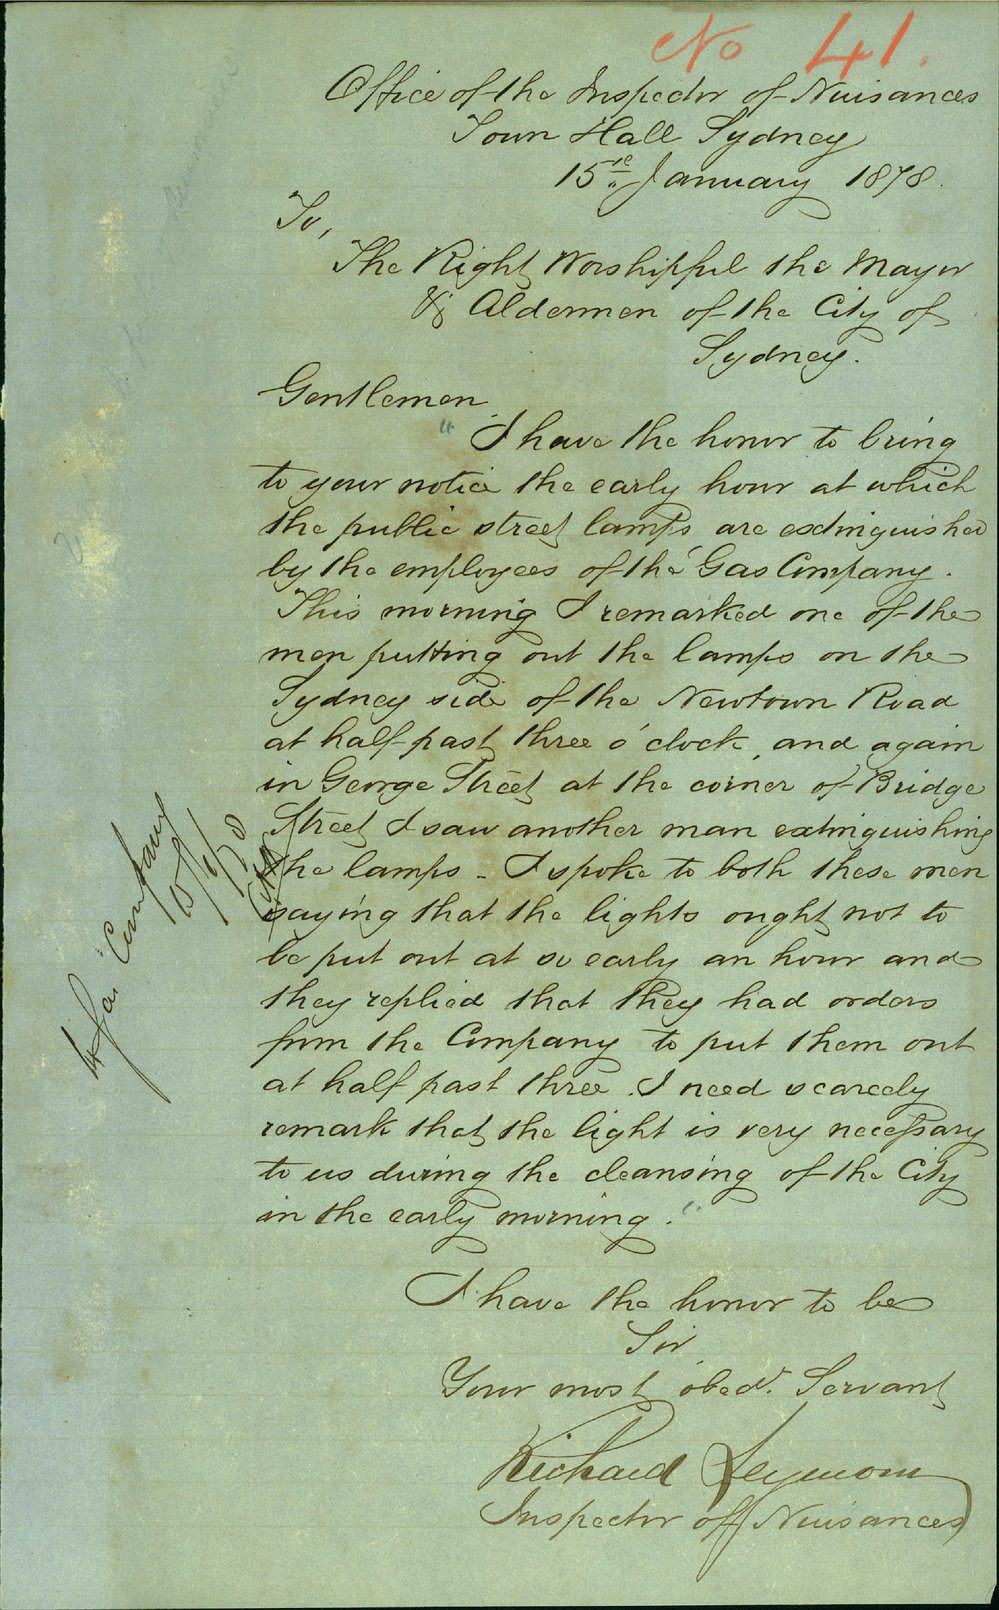 No 41.
Office of the Inspector of Nuisances
Town Hall Sydney
15th January 1878.
To,
The Right Worshipful the Mayor
& Aldermen of the City of
Sydney.
Gentlemen
"I have the honor to bring
to your notice the early hour at which
the public street lamps are extinguished
by the employees of the Gas Company.
This morning I remarked one of the
men putting out the lamps on the
Sydney side of the Newtown Road
at half past three o'clock, and again
in George Street at the corner of Bridge
Street I saw another man extinguishing
the lamps - I spoke to both these men
saying that the lights ought not to
be put out at so early an hour and
they replied that they had orders
from the Company to put them out
at half past three. I need scarcely
remark that the light is very necessary
to us during the cleansing of the City
in the early morning."
I have the honor to be
Sir
Your most obedt. Servant
Richard Seymour
Inspector of Nuisances
Gas Company